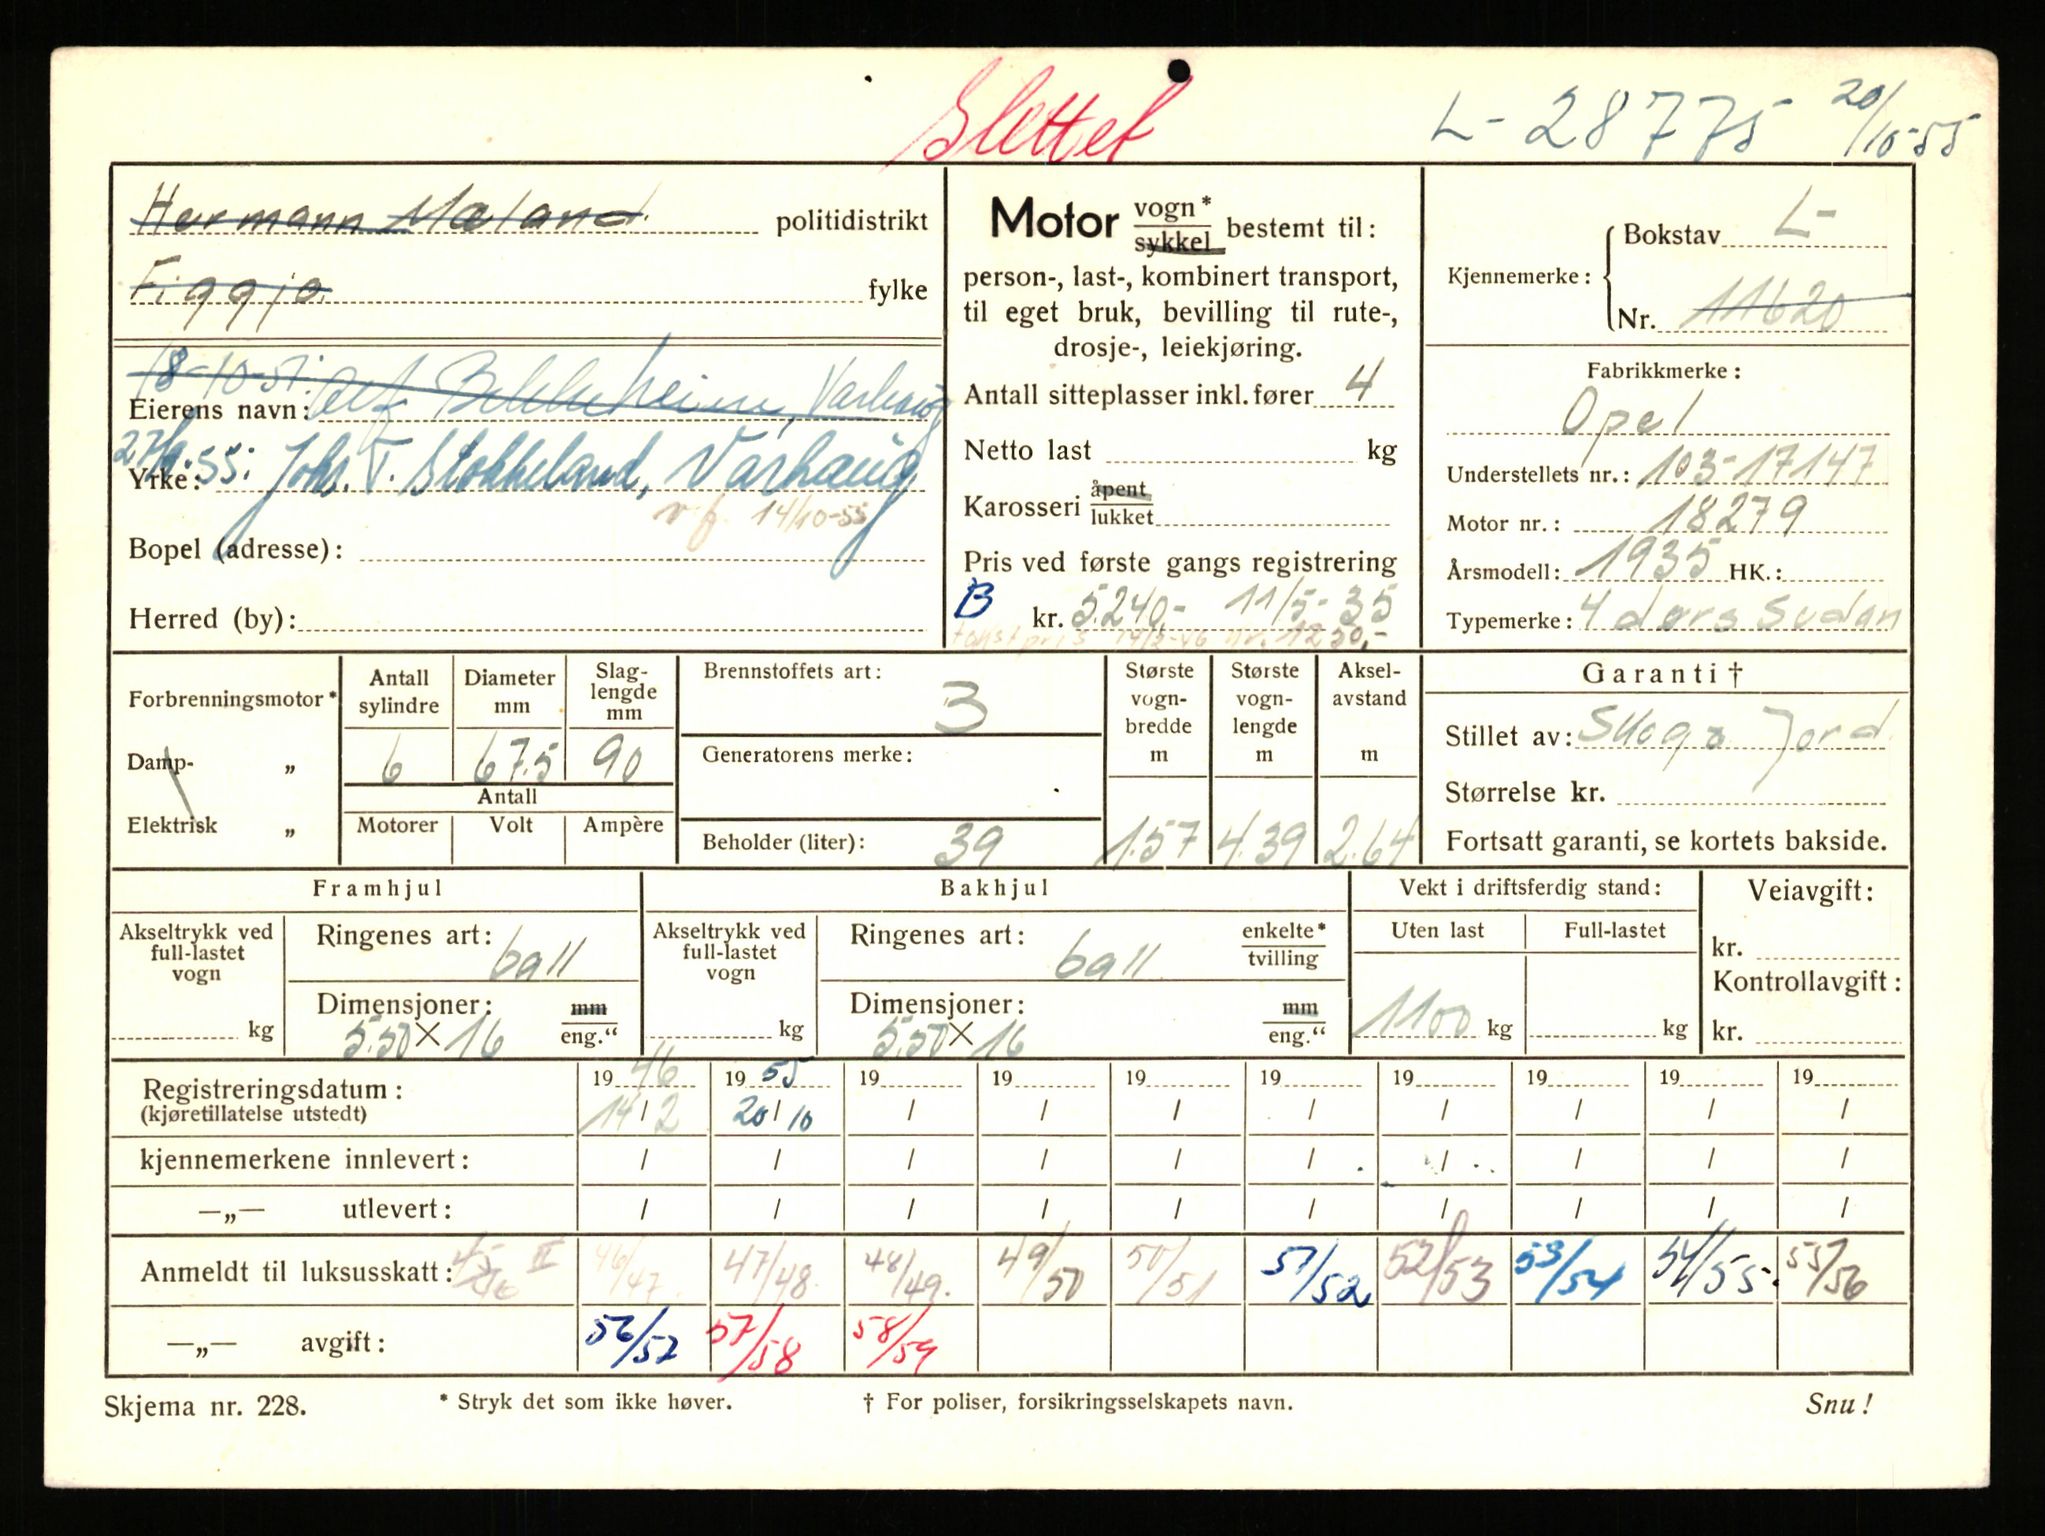 Slettet
L- 28775 20/10-55
Hermann Mæland politidistrikt
Figgjo fylke
18-10-51: Alf Bekkeheim, Varhaug
Eierens navn:
27/9-55: Johs. T. Stokkeland, Varhaug
Yrke:
v.f. 14/10-55
Bopel (adresse):
Herred (by):
Motor vogn* sykkel bestemt til:
person-, last-, kombinert transport,
til eget bruk, bevilling til rute-,
drosje-, leiekjøring.
Antall sitteplasser inkl. fører 4
Netto last kg
Karosseri åpent lukket
Pris ved første gangs registrering
B kr. 5.240,- 11/5-35
takstpris 14/2-46 kr. 1250,-
Kjennemerke: Bokstav L-
Nr. 11620
Fabrikkmerke:
Opel
Understellets nr.: 103-17147
Motor nr.: 18279
Årsmodell: 1935 HK.:
Typemerke: 4 dørs Sedan
Forbrenningsmotor*
Damp- „
Elektrisk „
Antall sylindre 6
Diameter mm 67.5
Slaglengde mm 90
Antall
Motorer Volt Ampère
Brennstoffets art: 3
Generatorens merke:
Beholder (liter): 39
Største vognbredde m 1.57
Største vognlengde m 4.39
Akselavstand m 2.64
Garanti †
Stillet av: Skog o Jord
Størrelse kr.
Fortsatt garanti, se kortets bakside.
Framhjul
Akseltrykk ved full-lastet vogn kg
Ringenes art: ball
Dimensjoner: mm
5.50 × 16 eng.“
Bakhjul
Akseltrykk ved full-lastet vogn kg
Ringenes art: ball enkelte* tvilling
Dimensjoner: mm
5.50 × 16 eng.“
Vekt i driftsferdig stand:
Uten last Full-lastet
1100 kg kg
Veiavgift:
kr.
Kontrollavgift:
kr.
Registreringsdatum: 19 46 19 55 19 19 19 19 19 19 19 19
(kjøretillatelse utstedt) 14/2 20/10 / / / / / / / /
kjennemerkene innlevert: / / / / / / / / / /
—„— utlevert: / / / / / / / / / /
Anmeldt til luksusskatt: 45/46 II 46/47 47/48 48/49 49/50 50/51 51/52 52/53 53/54 54/55 55/56
—„— avgift: 56/57 57/58 58/59
Skjema nr. 228. * Stryk det som ikke høver. † For poliser, forsikringsselskapets navn. Snu!